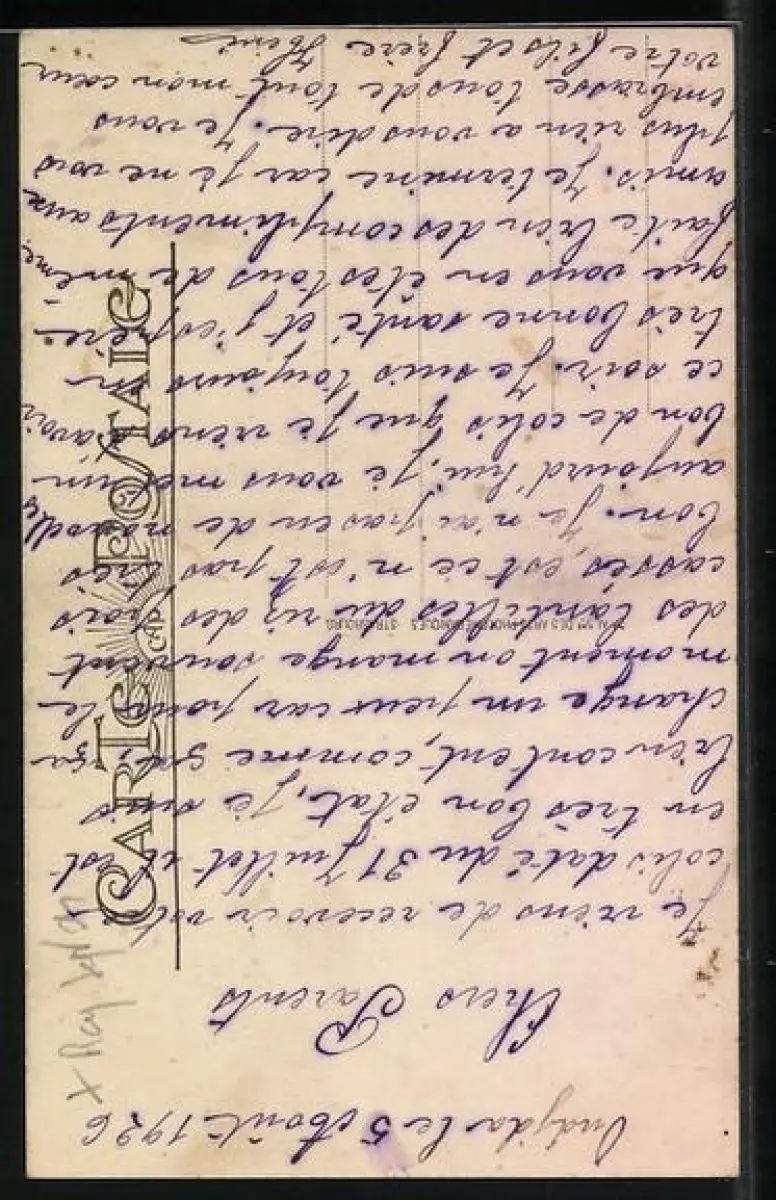 Oudjda le 5 Août 1926
Chers Parents
Je viens de recevoir votre
colis daté du 31 Juillet il est
en très bon état, je suis
bien content, comme ça, ça
change un peux car pour le
moment on mange souvent
des lantilles du riz des pois
cassés, est ce n'est pas très
bon. Je n'ai pas en de nouvelles
aujourd'hui, je vous met un
bon de colis que je viens d'avoir
ce soir. Je suis toujours en
très bonne santé et j'espère
que vous en êtes tous de même
faite bien des compliments aux
amis. Je termine car je ne vois
plus rien a vous dire. Je vous
embrasse tous de tout mon cœur
votre fils et frère
CARTE POSTALE
DES ARTS PHOTOMECANIQUES STRASBOURG